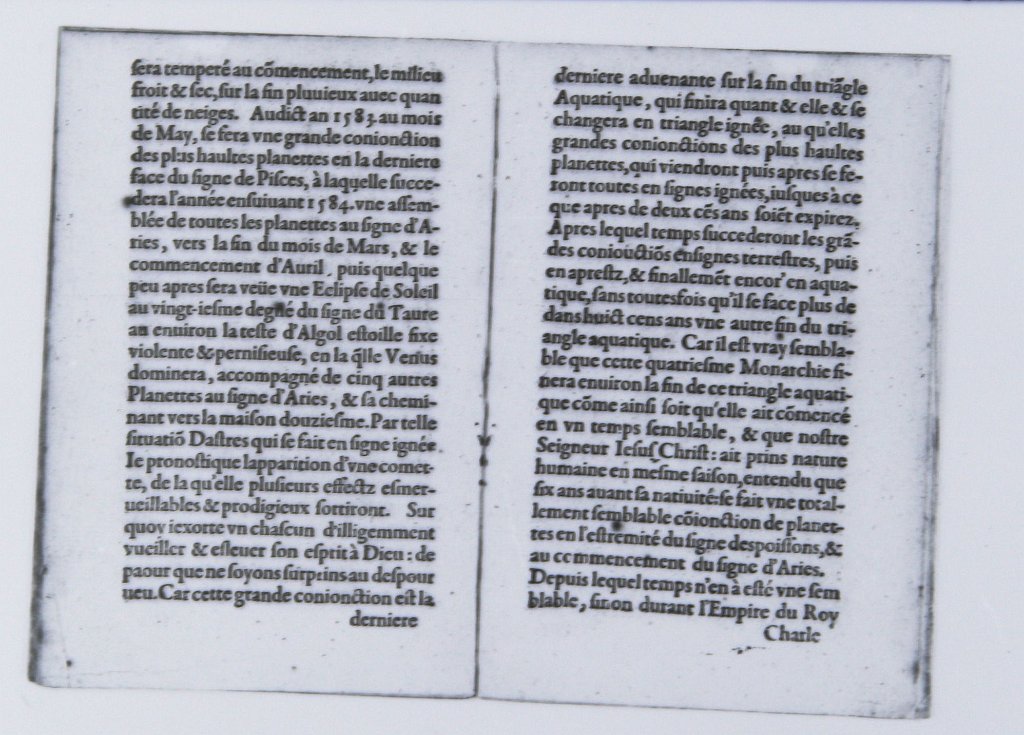 ſera temperé au cõmencement, le milieu
froit & ſec, ſur la fin pluuieux auec quan
tité de neiges. Audict an 1583. au mois
de May, ſe fera vne grande conionction
des plus haultes planettes en la derniere
face du ſigne de Piſces, à laquelle ſucce-
dera l'année enſuiuant 1584. vne aſſem-
blée de toutes les planettes au ſigne d'A-
ries, vers la fin du mois de Mars, & le
commencement d'Auril, puis quelque
peu apres ſera veüe vne Eclipſe de Soleil
au vingt-ieſme degré du ſigne du Taure
au enuiron la teſte d'Algol eſtoille fixe
violente & perniſieuſe, en la q̃lle Venus
dominera, accompagné de cinq autres
Planettes au ſigne d'Aries, & ſa chemi-
nant vers la maiſon douzieſme. Par telle
ſituatiõ Daſtres qui ſe fait en ſigne ignée.
Ie pronoſtique lapparition d'vne comet-
te, de la qu'elle pluſieurs effectz eſmer-
ueillables & prodigieux ſortiront. Sur
quoy iexorte vn chaſcun d'illigemment
vueiller & eſleuer ſon eſprit à Dieu: de
paour que ne ſoyons ſurprins au deſpour
ueu. Car cette grande conionction eſt la
derniere
derniere aduenante ſur la fin du triãgle
Aquatique, qui finira quant & elle & ſe
changera en triangle ignée, au qu'elles
grandes conionctions des plus haultes
planettes, qui viendront puis apres ſe fe-
ront toutes en ſignes ignées, iuſques à ce
que apres de deux cẽs ans ſoiẽt expirez.
Apres lequel temps ſuccederont les grã-
des coniouctiõs enſignes terreſtres, puis
en apreſtz, & finallemẽt encor' en aqua-
tique, ſans toutesfois qu'il ſe face plus de
dans huict cens ans vne autre fin du tri-
angle aquatique. Car il eſt vray ſembla-
ble que cette quatrieſme Monarchie fi-
nera enuiron la fin de ce triangle aquati-
que cõme ainſi ſoit qu'elle ait cõmencé
en vn temps ſemblable, & que noſtre
Seigneur Ieſus Chriſt: ait prins nature
humaine en meſme ſaiſon, entendu que
ſix ans auant ſa natiuité: ſe fait vne total-
lement ſemblable cõionction de planet-
tes en l'eſtremité du ſigne des poiſſons, &
au commencement du ſigne d'Aries.
Depuis lequel temps n'en à eſté vne ſem
blable, ſinon durant l'Empire du Roy
Charle